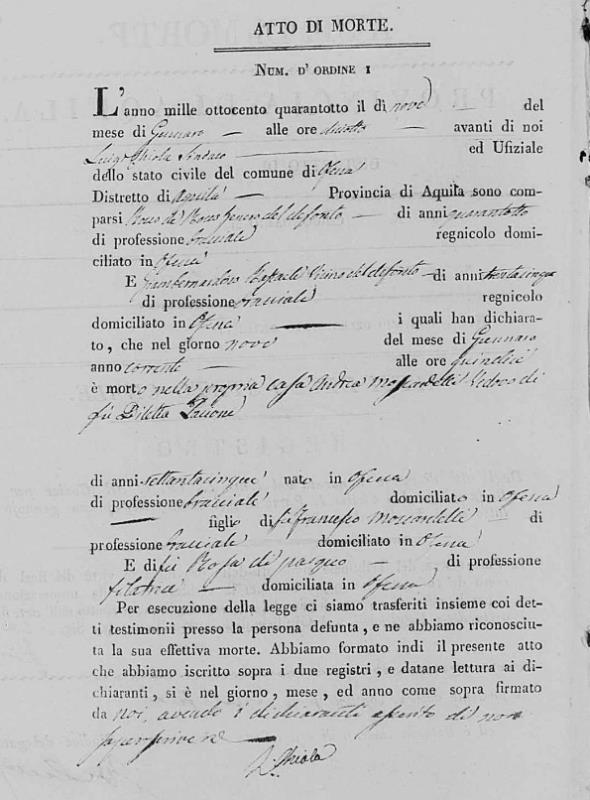 ATTO DI MORTE.
NUM. D' ORDINE 1
L'anno mille ottocento quarantotto il dì nove del
mese di Gennaro alle ore diciotto avanti di noi
Luigi Ghiola Sindaco ed Ufiziale
dello stato civile del comune di Ofena
Distretto di Aquila Provincia di Aquila sono com-
parsi Rocco de Rocco genero del defonto di anni quarantotto
di professione bracciale regnicolo domi-
ciliato in Ofena
E Giambernardino Raffaele vicino del defonto di anni trentacinque
di professione bracciale regnicolo
domiciliato in Ofena i quali han dichiara-
to, che nel giorno nove del mese di Gennaro
anno corrente alle ore quindici
è morto nella propria casa Andrea Moscardelli Vedovo di
fu Diletta
di anni settantacinque nato in Ofena
di professione bracciale domiciliato in Ofena
figlio di fu Francesco Moscardelli di
professione bracciale domiciliato in Ofena
E di fu Rosa di Pasquo di professione
filatrice domiciliata in Ofena
Per esecuzione della legge ci siamo trasferiti insieme coi det-
ti testimonii presso la persona defunta, e ne abbiamo riconosciu-
ta la sua effettiva morte. Abbiamo formato indi il presente atto
che abbiamo iscritto sopra i due registri, e datane lettura ai di-
chiaranti, si è nel giorno, mese, ed anno come sopra firmato
da noi, avendo i dichiaranti asserito di non
saper scrivere
L. Ghiola